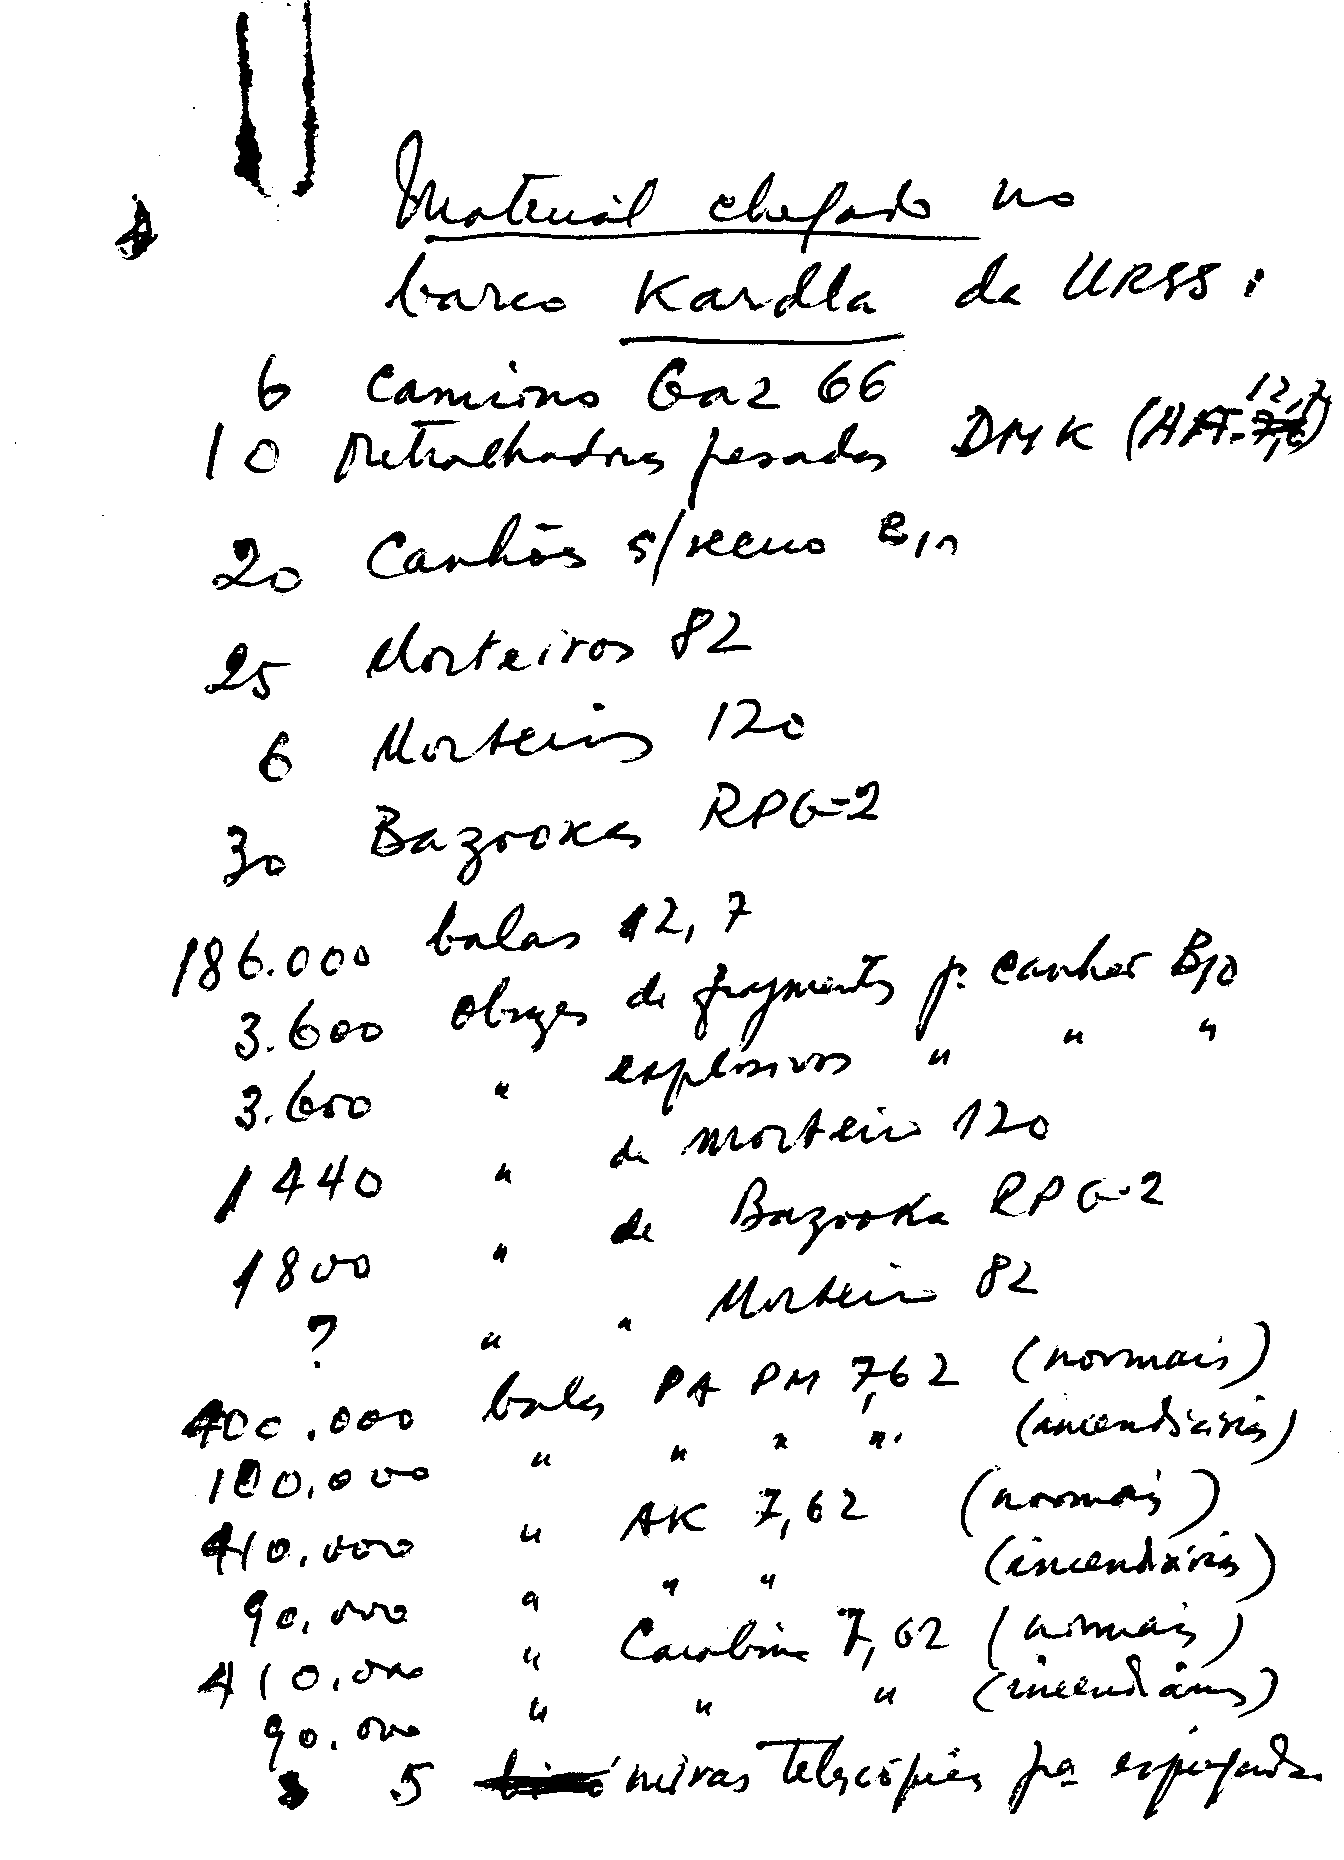 Material chegado no
barco Kardla da URSS:
6 Camions Gaz 66
10 Metralhadoras pesadas DMK (AA. 12,7)
20 Canhões s/recuo B10
25 Morteiros 82
6 Morteiros 120
30 Bazookas RPG-2
186.000 balas 12,7
3.600 obuzes de fragmentos p. canhões B10
3.600 " explosivos " " "
1440 " de morteiro 120
1800 " de Bazooka RPG-2
? " " Morteiro 82
400.000 balas PA PM 7,62 (normais)
100.000 " " " " (incendiárias)
410.000 " AK 7,62 (normais)
90.000 " " " (incendiárias)
410.000 " Carabina 7,62 (normais)
90.000 " " " (incendiárias)
5 miras telescópicas pa espingardas